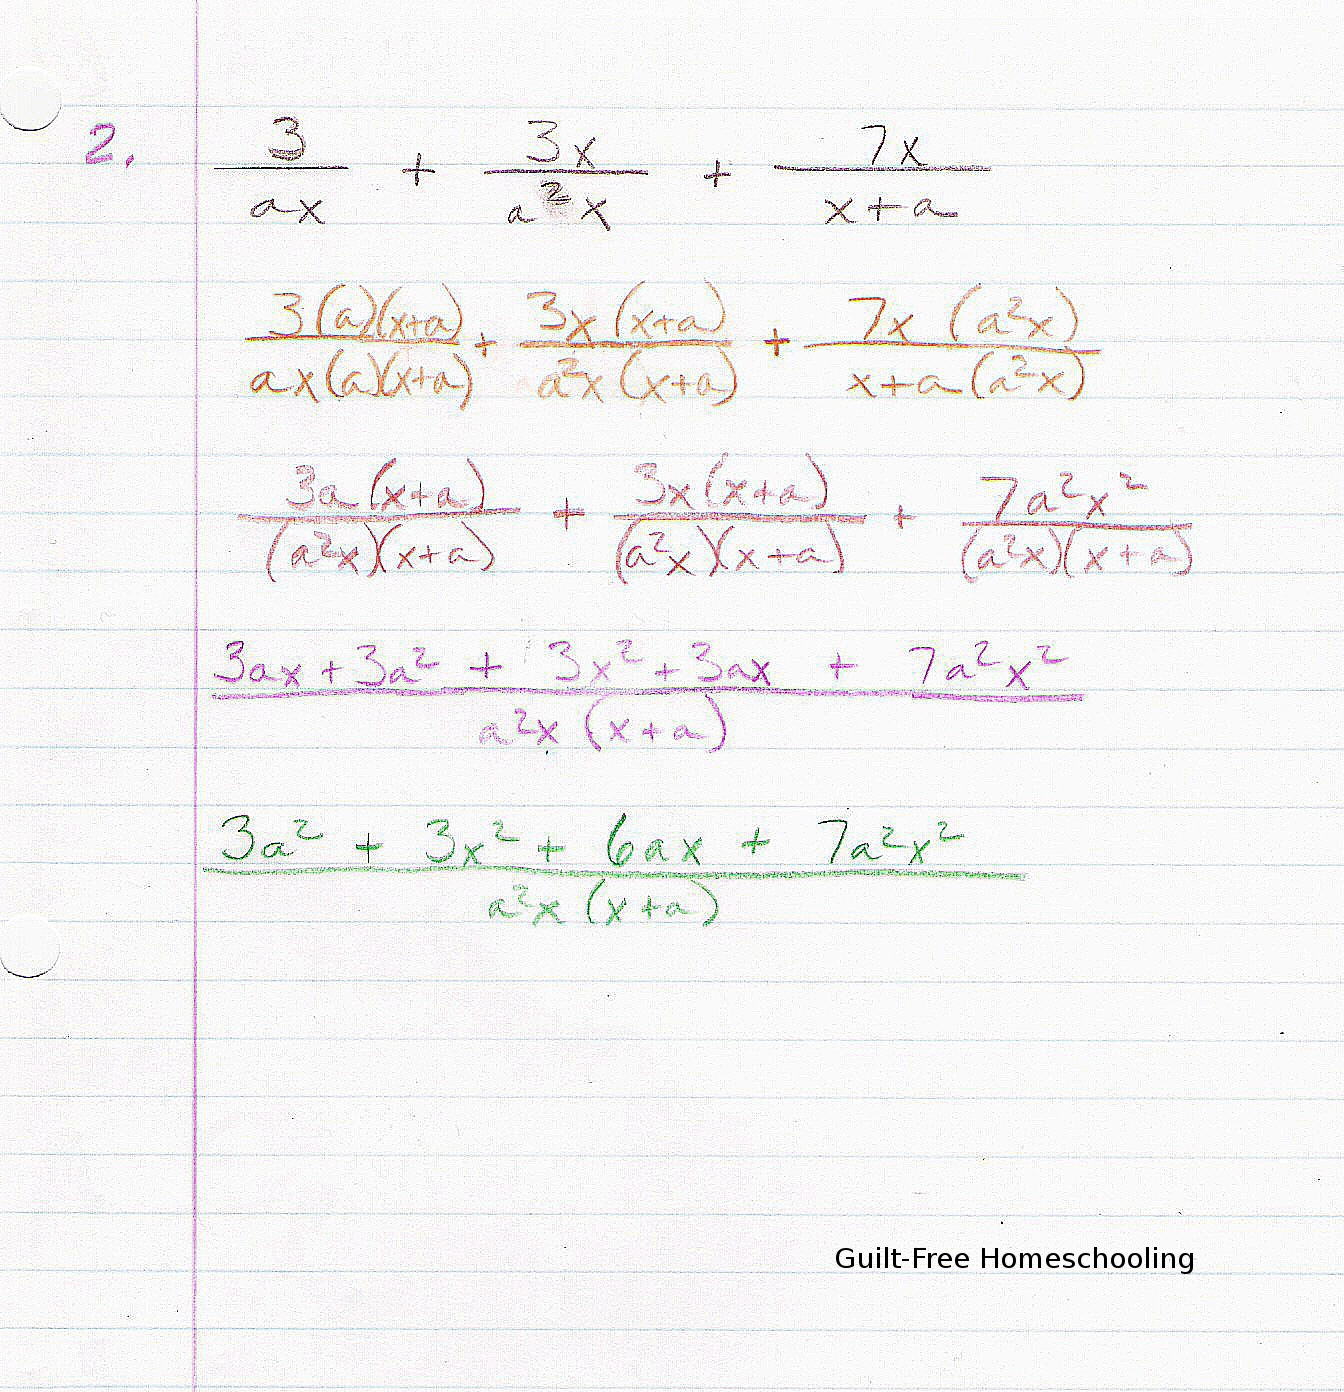 2. 3/ax + 3x/a²x + 7x/x+a
3(a)(x+a)/ax(a)(x+a) + 3x(x+a)/a²x(x+a) + 7x(a²x)/x+a(a²x)
3a(x+a)/(a²x)(x+a) + 3x(x+a)/(a²x)(x+a) + 7a²x²/(a²x)(x+a)
3ax+3a² + 3x²+3ax + 7a²x²
a²x (x+a)
3a² + 3x² + 6ax + 7a²x²
a²x (x+a)
Guilt-Free Homeschooling